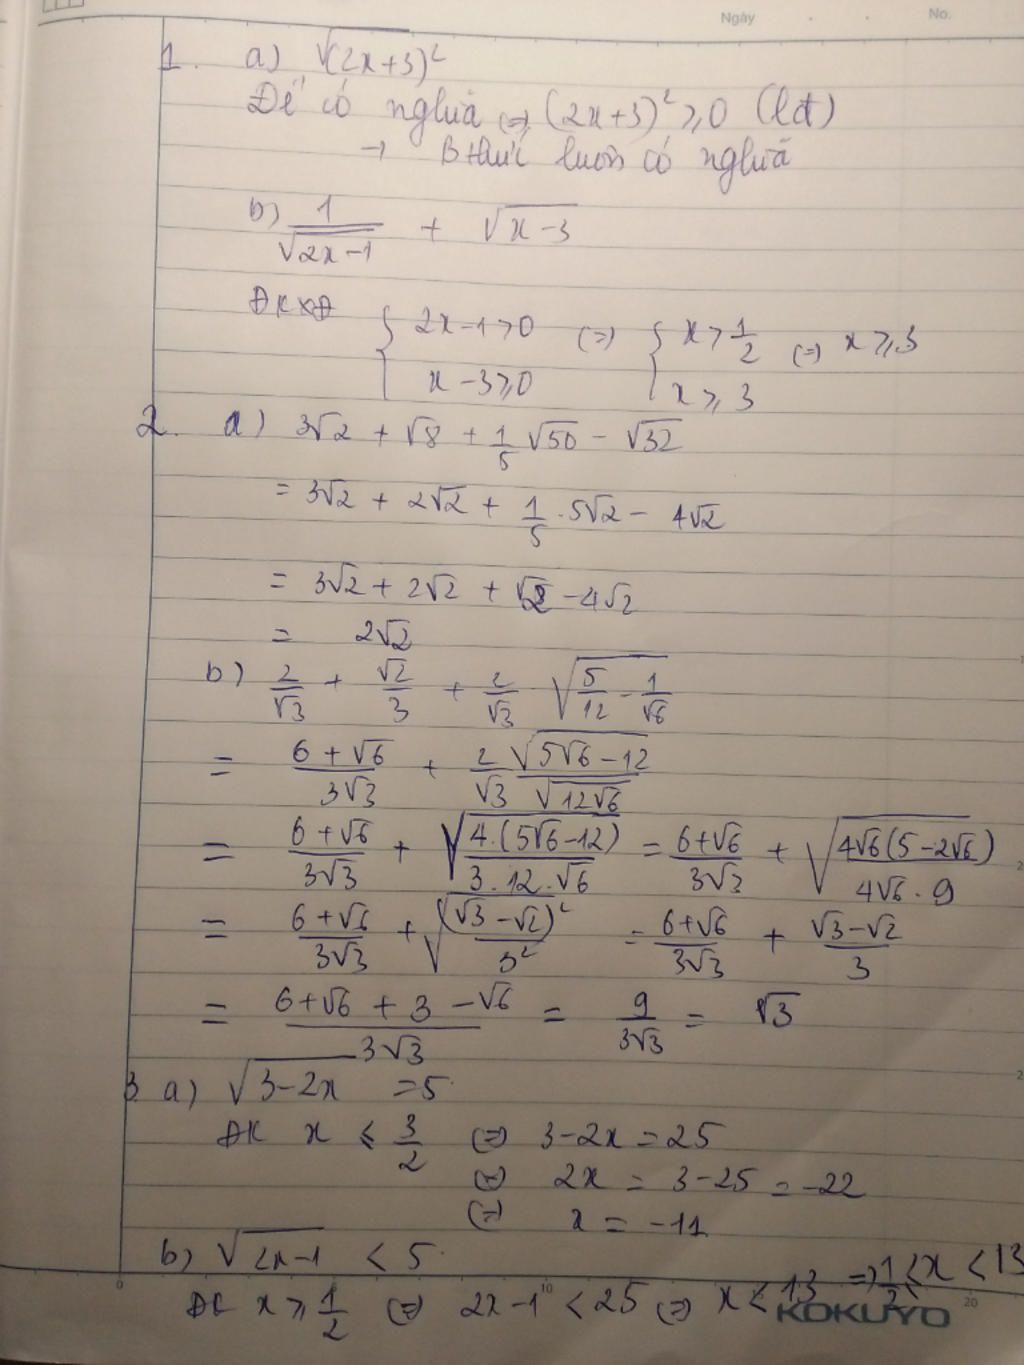 Ngày . . No.
1. a) √(2x+3)²
Để có nghĩa (=) (2x+3)² ≥ 0 (lđ)
→ Bthức luôn có nghĩa
b) 1/√(2x-1) + √(x-3)
ĐKXĐ { 2x-1>0 ; x-3≥0 (=) { x>1/2 ; x≥3 (=) x≥3
2. a) 3√2 + √8 + 1/5 √50 - √32
= 3√2 + 2√2 + 1/5 . 5√2 - 4√2
= 3√2 + 2√2 + √2 - 4√2
= 2√2
b) 2/√3 + √2/3 + 2/√3 √(5/12 - 1/√6)
= (6+√6)/(3√3) + 2/√3 √(5√6-12)/√(12√6)
= (6+√6)/(3√3) + √(4.(5√6-12)/(3.12.√6)) = (6+√6)/(3√3) + √(4√6(5-2√6)/(4√6.9))
= (6+√6)/(3√3) + √((√3-√2)²/3²) = (6+√6)/(3√3) + (√3-√2)/3
= (6+√6+3-√6)/(3√3) = 9/(3√3) = √3
3 a) √(3-2x) = 5
ĐK x ≤ 3/2 (=) 3-2x = 25
(=) 2x = 3-25 = -22
(=) x = -11
b) √(2x-1) < 5
ĐK x ≥ 1/2 (=) 2x-1 < 25 (=) x < 13 =) 1/2 ≤ x < 13
0 10 20
KOKUYO